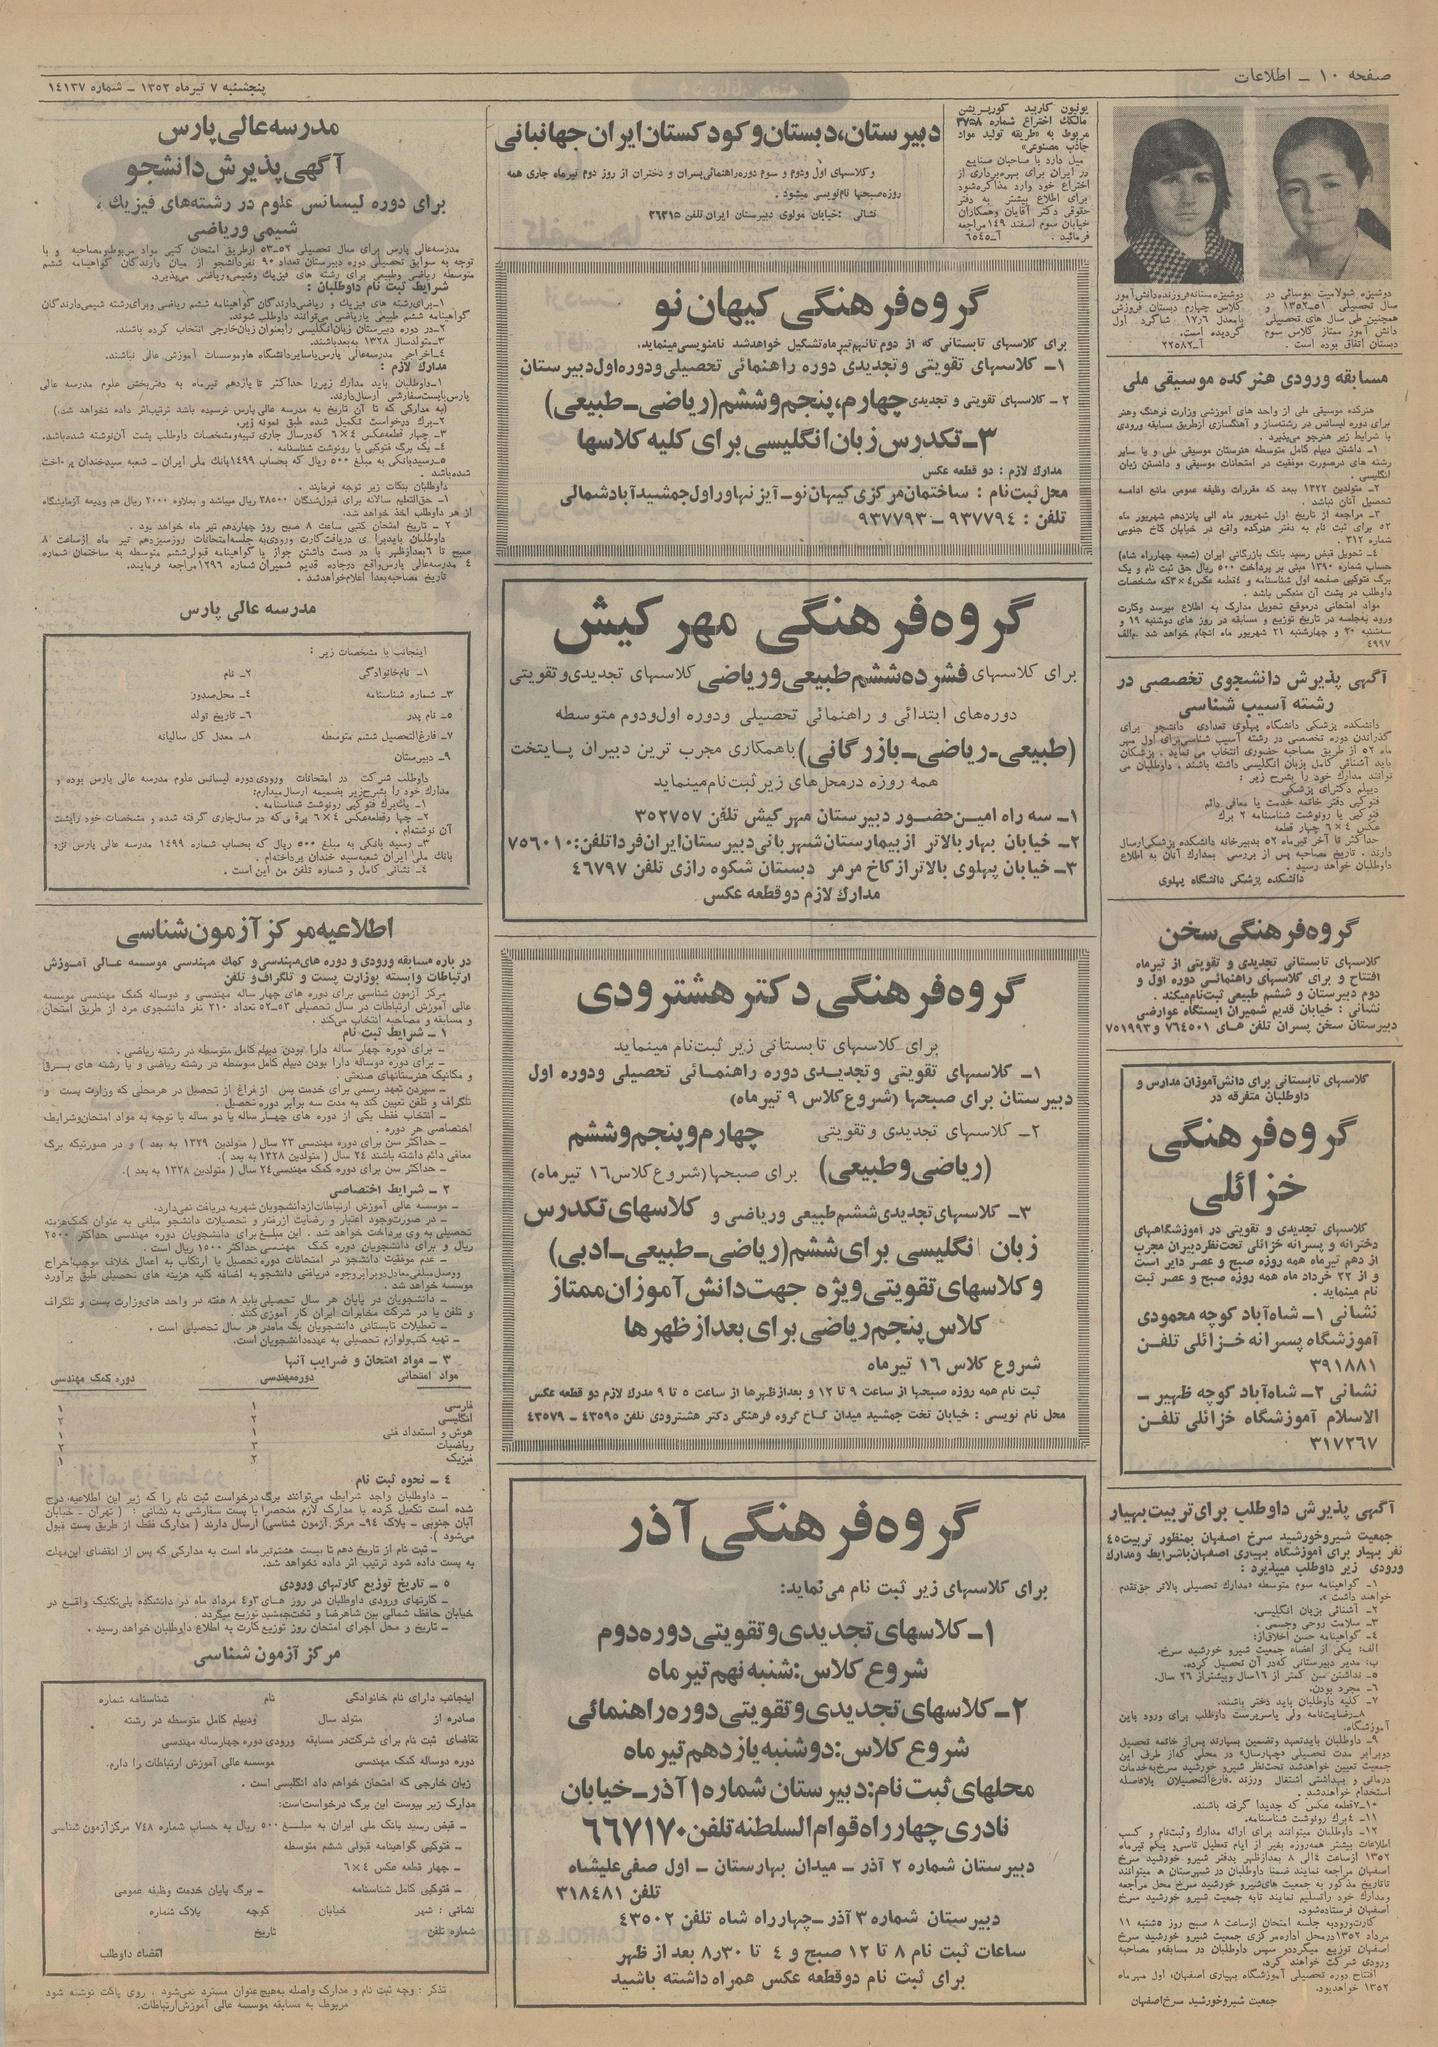 صفحه ۱۰ ـ اطلاعات
پنجشنبه ۷ تیرماه ۱۳۵۲ ـ شماره ۱۴۱۳۷
دوشیزه شولامیت موسائی در
سال تحصیلی ۵۱ـ۱۳۵۲ و
همچنین طی سال های تحصیلی
دانش آموز ممتاز کلاس سوم
دبستان اتفاق بوده است .
کلاس چهارم دبستان فروزش
بامعدل ۱۷٫۶ شاگرد اول
گردیده است.
آ-۲۲۵۸۲
مسابقه ورودی هنرکده موسیقی ملی
هنرکده موسیقی ملی از واحد های آموزشی وزارت فرهنگ وهنر
برای دوره لیسانس در رشته‌ساز و آهنگسازی ازطریق مسابقه ورودی
با شرایط زیر هنرجو می‌پذیرد .
۱ـ داشتن دیپلم کامل متوسطه هنرستان موسیقی ملی و یا سایر
رشته های درصورت موفقیت در امتحانات موسیقی و دانستن زبان
انگلیسی .
۲ـ متولدین ۱۳۲۲ ببعد که مقررات وظیفه عمومی مانع ادامه
تحصیل آنان نباشد .
۳ـ مراجعه از تاریخ اول شهریور ماه الی پانزدهم شهریور ماه
۵۲ برای ثبت نام به دفتر هنرکده واقع در خیابان کاخ جنوبی
شماره ۳۱۲ .
۴ـ تحویل قبض رسید بانک بازرگانی ایران (شعبه چهارراه شاه)
حساب شماره ۱۳۹۰ مبنی بر پرداخت ۵۰۰ ریال حق ثبت نام و یک
برگ فتوکپی صفحه اول شناسنامه و ۴قطعه عکس۴×۳که مشخصات
داوطلب در پشت آن منعکس باشد .
مواد امتحانی درموقع تحویل مدارک به اطلاع میرسد وکارت
ورود به‌جلسه در تاریخ توزیع و مسابقه در روز های دوشنبه ۱۹ و
سه‌شنبه ۲۰ و چهارشنبه ۲۱ شهریور ماه انجام خواهد شد م‌الف
۴۹۹۷
آگهی پذیرش دانشجوی تخصصی در
رشته آسیب شناسی
دانشکده پزشکی دانشگاه پهلوی تعدادی دانشجو برای
گذراندن دوره تخصصی در رشته آسیب شناسی‌برای اول مهر
ماه ۵۲ از طریق مصاحبه حضوری انتخاب می نماید . پزشکان
باید آشنائی کامل بزبان انگلیسی داشته باشند . داوطلبان می
توانند مدارک خود را بشرح زیر :
دیپلم دکترای پزشکی
فتوکپی دفتر خاتمه خدمت یا معافی دائم
فتوکپی یا رونوشت شناسنامه ۲ برگ
عکس ۴×۶ چهار قطعه
حداکثر تا آخر تیرماه ۵۲ بدبیرخانه دانشکده پزشکی‌ارسال
دارند . تاریخ مصاحبه پس از بررسی مدارک آنان به اطلاع
داوطلبان خواهد رسید .
دانشکده پزشکی دانشگاه پهلوی
گروه فرهنگی سخن
کلاسهای تابستانی تجدیدی و تقویتی از تیرماه
افتتاح و برای کلاسهای راهنمائی دوره اول و
دوم دبیرستان و ششم طبیعی ثبت‌نام‌میکند .
نشانی : خیابان قدیم شمیران ایستگاه عوارضی
دبیرستان سخن پسران تلفن های ۷۶۴۵۰۱ و۷۵۱۹۹۳
کلاسهای تابستانی برای دانش‌آموزان مدارس و
داوطلبان متفرقه در
گروه فرهنگی
خزائلی
کلاسهای تجدیدی و تقویتی در آموزشگاههای
دخترانه و پسرانه خزائلی تحت‌نظردبیران مجرب
از دهم تیرماه همه روزه صبح و عصر دایر است
و از ۲۲ خرداد ماه همه روزه صبح و عصر ثبت
نام مینماید .
نشانی ۱ـ شاه‌آباد کوچه محمودی
آموزشگاه پسرانه خزائلی تلفن
۳۹۱۸۸۱
نشانی ۲ـ شاه‌آباد کوچه ظهیر ـ
الاسلام آموزشگاه خزائلی تلفن
۳۱۷۲۶۷
آگهی پذیرش داوطلب برای تربیت بهیار
جمعیت شیروخورشید سرخ اصفهان بمنظور تربیت۴۵
نفر بهیار برای آموزشگاه بهیاری اصفهان‌باشرایط ومدارک
ورودی زیر داوطلب میپذیرد :
۱ـ گواهینامه سوم متوسطه «مدارک تحصیلی بالاتر حق‌تقدم
خواهند داشت ».
۲ـ آشنائی بزبان انگلیسی.
۳ـ سلامت روحی وجسمی .
۴ـ گواهینامه حسن اخلاق‌از:
الف: یکی از اعضاء جمعیت شیرو خورشید سرخ.
ب: مدیر دبیرستانی که‌در آن تحصیل کرده.
۵ـ نداشتن سن کمتر از ۱۶سال وبیشتراز ۲۶ سال.
۶ـ مجرد بودن.
۷ـ کلیه داوطلبان باید دختر باشند.
۸ـرضایت‌نامه ولی یاسرپرست داوطلب برای ورود باین
آموزشگاه.
۹ـ داوطلبان بایدتعهد وتضمین بسپارند پس‌از خاتمه تحصیل
دوبرابر مدت تحصیلی «چهارسال» در محلی که‌از طرف این
جمعیت تعیین خواهدشد تحت‌نظر شیرو خورشید سرخ‌به‌خدمات
درمانی و بهداشتی اشتغال ورزند .فارغ‌التحصیلان بلافاصله
استخدام خواهندشد .
۱۰ـ۷قطعه عکس که جدیدا گرفته باشند.
۱۱ـ ۴برگ رونوشت شناسنامه.
۱۲ـ داوطلبان میتوانند برای ارائه مدارک وثبت‌نام و کسب
اطلاعات بیشتر همه‌روزه بغیر از ایام تعطیل تاسی‌و یکم تیرماه
۱۳۵۲ ازساعت ۴الی ۸ بعدازظهر بدفتر شیرو خورشید سرخ
اصفهان مراجعه نمایند ضمنا داوطلبان در شهرستان ها میتوانند
تاتاریخ مذکور به جمعیت های‌شیرو خورشید سرخ محل مراجعه
ومدارک خود راتسلیم نمایند تابه جمعیت شیرو خورشید سرخ
اصفهان فرستاده‌شود.
کارت‌ورودبه جلسه امتحان ازساعت ۸ صبح روز ۵شنبه ۱۱
مرداد ۱۳۵۲درمحل اداره‌مرکزی جمعیت شیرو خورشید سرخ
اصفهان توزیع میگرددو سپس داوطلبان در مسابقه‌و مصاحبه
ورودی شرکت خواهند کرد.
افتتاح دوره تحصیلی آموزشگاه بهیاری اصفهان، اول مهرماه
۱۳۵۲ خواهدبود.
جمعیت شیروخورشید سرخ‌اصفهان
یونیون کارباید کورپریشن
مالک اختراع شماره ۳۷۵۸
مربوط به «طریقه تولید مواد
جاذب مصنوعی»
میل دارد با صاحبان صنایع
در ایران برای بهره‌برداری از
اختراع خود وارد مذاکره‌شود
برای اطلاع بیشتر به دفتر
حقوقی دکتر آقایان وهمکاران
خیابان سوم اسفند ۱۴۹مراجعه
فرمائید .
آ-۶۵۴۵
دبیرستان،دبستان وکودکستان ایران جهانبانی
وکلاسهای اول ودوم و سوم دوره‌راهنمائی‌پسران و دختران از روز دوم تیرماه جاری همه
روزه‌صبحها نام‌نویسی میشود .
نشانی :خیابان مولوی دبیرستان ایران‌تلفن ۲۶۳۱۵
گروه فرهنگی کیهان نو
برای کلاسهای تابستانی که از دوم تانهم‌تیرماه‌تشکیل خواهدشد نامنویسی‌مینماید.
۱ـ کلاسهای تقویتی وتجدیدی دوره راهنمائی تحصیلی ودوره‌اول‌دبیرستان
۲ ـ کلاسهای تقویتی و تجدیدی چهارم،پنجم وششم(ریاضی ـ طبیعی)
۳ـ تکدرس زبان انگلیسی برای کلیه کلاسها
مدارک لازم : دو قطعه عکس
محل ثبت‌نام : ساختمان مرکزی کیهان نو ـ آیزنهاور اول جمشیدآباد شمالی
تلفن : ۹۳۷۷۹۴ ـ ۹۳۷۷۹۳
گروه فرهنگی مهرکیش
برای کلاسهای فشرده ششم طبیعی وریاضی کلاسهای تجدیدی و تقویتی
دوره‌های ابتدائی و راهنمائی تحصیلی ودوره اول‌ودوم متوسطه
(طبیعی ـ ریاضی ـ بازرگانی) باهمکاری مجرب ترین دبیران پایتخت
همه روزه درمحل‌های زیرثبت‌نام‌مینماید
۱ـ سه راه امین‌حضور دبیرستان مهرکیش تلفن ۳۵۲۷۵۷
۲ـ خیابان بهار بالاتر ازبیمارستان‌شهربانی‌دبیرستان‌ایران‌فرداتلفن:۷۵۶۰۱۰
۳ـ خیابان پهلوی بالاترازکاخ مرمر دبستان شکوه رازی تلفن ۴۶۷۹۷
مدارک لازم دوقطعه عکس
گروه فرهنگی دکتر هشترودی
برای کلاسهای تابستانی زیر ثبت‌نام مینماید
۱ـ کلاسهای تقویتی وتجدیدی دوره راهنمائی تحصیلی ودوره اول
دبیرستان برای صبحها (شروع کلاس ۹ تیرماه)
۲ـ کلاسهای تجدیدی و تقویتی چهارم وپنجم وششم
(ریاضی وطبیعی) برای صبحها(شروع‌کلاس۱۶ تیرماه)
۳ـ کلاسهای تجدیدی‌ششم‌طبیعی وریاضی و کلاسهای تکدرس
زبان انگلیسی برای ششم(ریاضی ـ طبیعی ـ ادبی)
وکلاسهای تقویتی ویژه جهت دانش آموزان ممتاز
کلاس پنجم ریاضی برای بعدازظهرها
شروع کلاس ۱۶ تیرماه
ثبت نام همه روزه صبحها از ساعت ۹ تا ۱۲ و بعدازظهرها از ساعت ۵ تا ۹ مدرک لازم دو قطعه عکس
محل نام نویسی : خیابان تخت جمشید میدان کاخ گروه فرهنگی دکتر هشترودی تلفن ۴۳۵۹۵ ـ ۴۳۵۷۹
گروه فرهنگی آذر
برای کلاسهای زیر ثبت نام می‌نماید:
۱ـ کلاسهای تجدیدی و تقویتی دوره دوم
شروع کلاس:شنبه نهم تیرماه
۲ـ کلاسهای تجدیدی و تقویتی دوره راهنمائی
شروع کلاس:دوشنبه یازدهم تیرماه
محلهای ثبت نام:دبیرستان شماره ۱ آذر ـ خیابان
نادری چهارراه قوام السلطنه تلفن ۶۶۷۱۷۰
دبیرستان شماره ۲ آذر ـ میدان بهارستان ـ اول صفی‌علیشاه
تلفن ۳۱۸۴۸۱
دبیرستان شماره ۳ آذر ـ چهارراه شاه تلفن ۴۳۵۰۲
ساعات ثبت نام ۸ تا ۱۲ صبح و ۴ تا ۸٫۳۰ بعد از ظهر
برای ثبت نام دوقطعه عکس همراه داشته باشید
مدرسه عالی پارس
آگهی پذیرش دانشجو
برای دوره لیسانس علوم در رشته‌های فیزیک ،
شیمی وریاضی
مدرسه‌عالی پارس برای سال تحصیلی ۵۲ـ۵۳ ازطریق امتحان کتبی مواد مربوط‌ومصاحبه و با
توجه به سوابق تحصیلی دوره دبیرستان تعداد ۹۰ نفردانشجو از میان دارندگان گواهینامه ششم
متوسطه ریاضی وطبیعی برای رشته های فیزیک وشیمی‌وریاضی می‌پذیرد.
شرایط ثبت نام داوطلبان :
۱ـبرای‌رشته های فیزیک و ریاضی‌دارندگان گواهینامه ششم ریاضی وبرای‌رشته شیمی‌دارندگان
گواهینامه ششم طبیعی یاریاضی می‌توانند داوطلب شوند.
۲ـدر دوره دبیرستان زبان‌انگلیسی رابعنوان زبان‌خارجی انتخاب کرده باشند.
۳ـمتولدسال ۱۳۲۸ به‌بعدباشند.
۴ـاخراجی مدرسه‌عالی پارس‌یاسایردانشگاه هاوموسسات آموزش عالی نباشند.
مدارک لازم :
۱ـداوطلبان باید مدارک زیررا حداکثر تا یازدهم تیرماه به دفتربخش علوم مدرسه عالی
پارس‌باپست‌سفارشی ارسال‌دارند.
(به مدارکی که تا آن تاریخ به مدرسه عالی پارس نرسیده باشد ترتیب‌اثر داده نخواهد شد.)
۲ـبرگ درخواست تکمیل شده طبق نمونه زیر.
۳ـ چهار قطعه‌عکس ۴×۶ که‌درسال جاری تهیه‌ومشخصات داوطلب پشت آن‌نوشته شده‌باشد.
۴ـ یک برگ فتوکپی یا رونوشت شناسنامه.
۵ـرسیدبانکی به مبلغ ۵۰۰ ریال که بحساب ۱۴۹۹بانک ملی ایران ـ شعبه سیدخندان پرداخت
شده‌باشد .
داوطلبان بنکات زیر توجه فرمایند .
۱ـ حق‌التعلیم سالانه برای قبول‌شدگان ۳۸۵۰۰ ریال میباشد و بعلاوه ۲۰۰۰ ریال هم ودیعه آزمایشگاه
از هر داوطلب اخذ خواهد شد.
۲ ـ تاریخ امتحان کتبی ساعت ۸ صبح روز چهاردهم تیر ماه خواهد بود .
داوطلبان بایدبرای دریافت‌کارت ورودی‌به جلسه‌امتحانات روزسیزدهم تیر ماه ازساعت ۸
صبح تا ۶بعدازظهر با در دست داشتن جواز یا گواهینامه قبولی‌ششم متوسطه به ساختمان شماره
۴ مدرسه‌عالی پارس‌واقع درجاده قدیم شمیران شماره ۱۲۹۶مراجعه فرمایند.
تاریخ مصاحبه‌بعدا اعلام‌خواهدشد .
مدرسه عالی پارس
اینجانب با مشخصات زیر :
۱ـ نام‌خانوادگی ۲ـ نام
۳ـ شماره شناسنامه ۴ـ محل‌صدور
۵ـ نام پدر ۶ـ تاریخ تولد
۷ـ فارغ‌التحصیل ششم متوسطه ۸ـ معدل کل سالیانه
۹ـ دبیرستان
داوطلب شرکت در امتحانات ورودی‌دوره لیسانس علوم مدرسه عالی پارس بوده و
مدارک خود را بشرح‌زیر بضمیمه ارسال‌میدارم:
۱ـ یک‌برگ فتوکپی رونوشت شناسنامه .
آن نوشته‌ام .
۳ـ رسید بانکی به مبلغ ۵۰۰ ریال که بحساب شماره ۱۴۹۹ مدرسه عالی پارس نزد
بانک ملی ایران شعبه‌سید خندان پرداخته‌ام .
۴ـ نشانی کامل و شماره تلفن من این است .
اطلاعیه مرکز آزمون شناسی
در باره مسابقه ورودی و دوره های‌مهندسی و کمک مهندسی موسسه عالی آموزش
ارتباطات وابسته بوزارت پست و تلگراف‌و تلفن
مرکز آزمون شناسی برای دوره های چهار ساله مهندسی و دوساله کمک مهندسی موسسه
عالی آموزش ارتباطات در سال تحصیلی ۵۳ـ۵۲ تعداد ۲۱۰ نفر دانشجوی مرد از طریق امتحان
و مسابقه و مصاحبه انتخاب می‌کند .
۱ ـ شرایط ثبت نام
ـ برای دوره چهار ساله دارا بودن دیپلم کامل متوسطه در رشته ریاضی .
ـ برای دوره دوساله دارا بودن دیپلم کامل متوسطه در رشته ریاضی و یا رشته های برق
و مکانیک هنرستانهای صنعتی .
ـ سپردن تعهد رسمی برای خدمت پس ازفراغ از تحصیل در هرمحلی که وزارت پست و
تلگراف و تلفن تعیین کند به مدت سه برابر دوره تحصیل .
ـ انتخاب فقط یکی از دوره های چهارساله یا دو ساله با توجه به مواد امتحان‌وشرایط
اختصاصی هر دوره .
ـ حداکثر سن برای دوره مهندسی ۲۳ سال ( متولدین ۱۳۲۹ به بعد ) و در صورتیکه برگ
معافی دائم داشته باشند ۲۴ سال ( متولدین ۱۳۲۸ به بعد ).
ـ حداکثر سن برای دوره کمک مهندسی۲۴ سال ( متولدین ۱۳۲۸ به بعد ).
۲ ـ شرایط اختصاصی
ـ موسسه عالی آموزش ارتباطات‌ازدانشجویان شهریه دریافت نمی‌دارد.
ـ در صورت‌وجود اعتبار و رضایت ازرفتار و تحصیلات دانشجو مبلغی به عنوان کمک‌هزینه
تحصیلی به وی پرداخت خواهد شد . این مبلغ برای دانشجویان دوره مهندسی حداکثر ۲۵۰۰
ریال و برای دانشجویان دوره کمک مهندسی حداکثر ۱۵۰۰ ریال است .
ـ عدم موفقیت دانشجو در امتحانات دوره تحصیل یا ارتکاب به اعمال خلاف موجب‌اخراج
ووصل‌مبلغی‌معادل‌دوبرابروجوه دریافتی دانشجو به اضافه کلیه هزینه های تحصیلی طبق برآورد
موسسه خواهد شد .
ـ دانشجویان در پایان هر سال تحصیلی باید ۸ هفته در واحد های‌وزارت پست و تلگراف
و تلفن یا در شرکت مخابرات ایران کار آموزی کنند .
ـ تعطیلات تابستانی دانشجویان یک ماه‌در هر سال تحصیلی است .
ـ تهیه کتب‌ولوازم تحصیلی به عهده‌دانشجویان است.
۳ ـ مواد امتحان و ضرایب آنها
مواد امتحانی دوره‌مهندسی دوره کمک مهندسی
فارسی ۱ ۱
انگلیسی ۲ ۲
هوش و استعداد فنی ۱ ۱
ریاضیات ۳ ۲
فیزیک ۲ ۱
۴ ـ نحوه ثبت نام
ـ داوطلبان واجد شرایط می‌توانند برگ درخواست ثبت نام را که زیر این اطلاعیه درج
شده است تکمیل کرده با مدارک لازم منحصرا با پست سفارشی به نشانی : ( تهران ـ خیابان
آبان جنوبی ـ پلاک ۹۴ـ مرکز آزمون شناسی) ارسال دارند ( مدارک فقط از طریق پست قبول
می‌شود ).
ـ ثبت نام از تاریخ دهم تا بیست هشتم‌تیر ماه است به مدارکی که پس از انقضای این‌مهلت
به پست داده شود ترتیب اثر داده نخواهد شد.
۵ ـ تاریخ توزیع کارتهای ورودی
ـ کارتهای ورودی داوطلبان در روز های ۳و۴ مرداد ماه در دانشکده پلی‌تکنیک واقع در
خیابان حافظ شمالی بین شاهرضا و تخت‌جمشید توزیع میگردد .
ـ تاریخ و محل اجرای امتحان روز توزیع‌کارت به اطلاع داوطلبان خواهد رسید .
مرکز آزمون شناسی
اینجانب دارای نام خانوادگی نام شناسنامه شماره
صادره از متولد سال ودیپلم کامل متوسطه در رشته
تقاضای ثبت نام برای شرکت‌در مسابقه ورودی دوره چهارساله مهندسی
دوره دوساله کمک مهندسی موسسه عالی آموزش ارتباطات را دارم.
زبان خارجی که امتحان خواهم داد انگلیسی است .
مدارک زیر پیوست این برگ درخواست‌است:
ـ قبض رسید بانک ملی ایران به مبلغ ۵۰۰ ریال به حساب شماره ۷۴۸ مرکزآزمون شناسی
ـ فتوکپی گواهینامه قبولی ششم متوسطه
ـ چهار قطعه عکس ۴×۶
ـ فتوکپی کامل شناسنامه ـ برگ پایان خدمت وظیفه عمومی
نشانی : شهر خیابان کوچه پلاک شماره
شماره تلفن تاریخ
امضاء داوطلب
تذکر : وجه ثبت نام و مدارک واصله به‌هیچ‌عنوان مسترد نمی‌شود . روی پاکت نوشته شود
مربوط به مسابقه موسسه عالی آموزش‌ارتباطات.